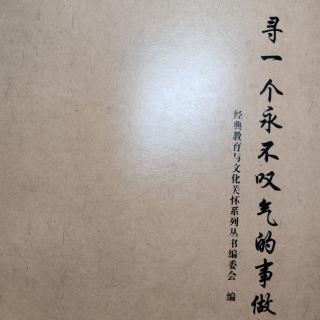 寻一个永不叹气的事做
经典教育与文化关怀系列丛书编委会 编